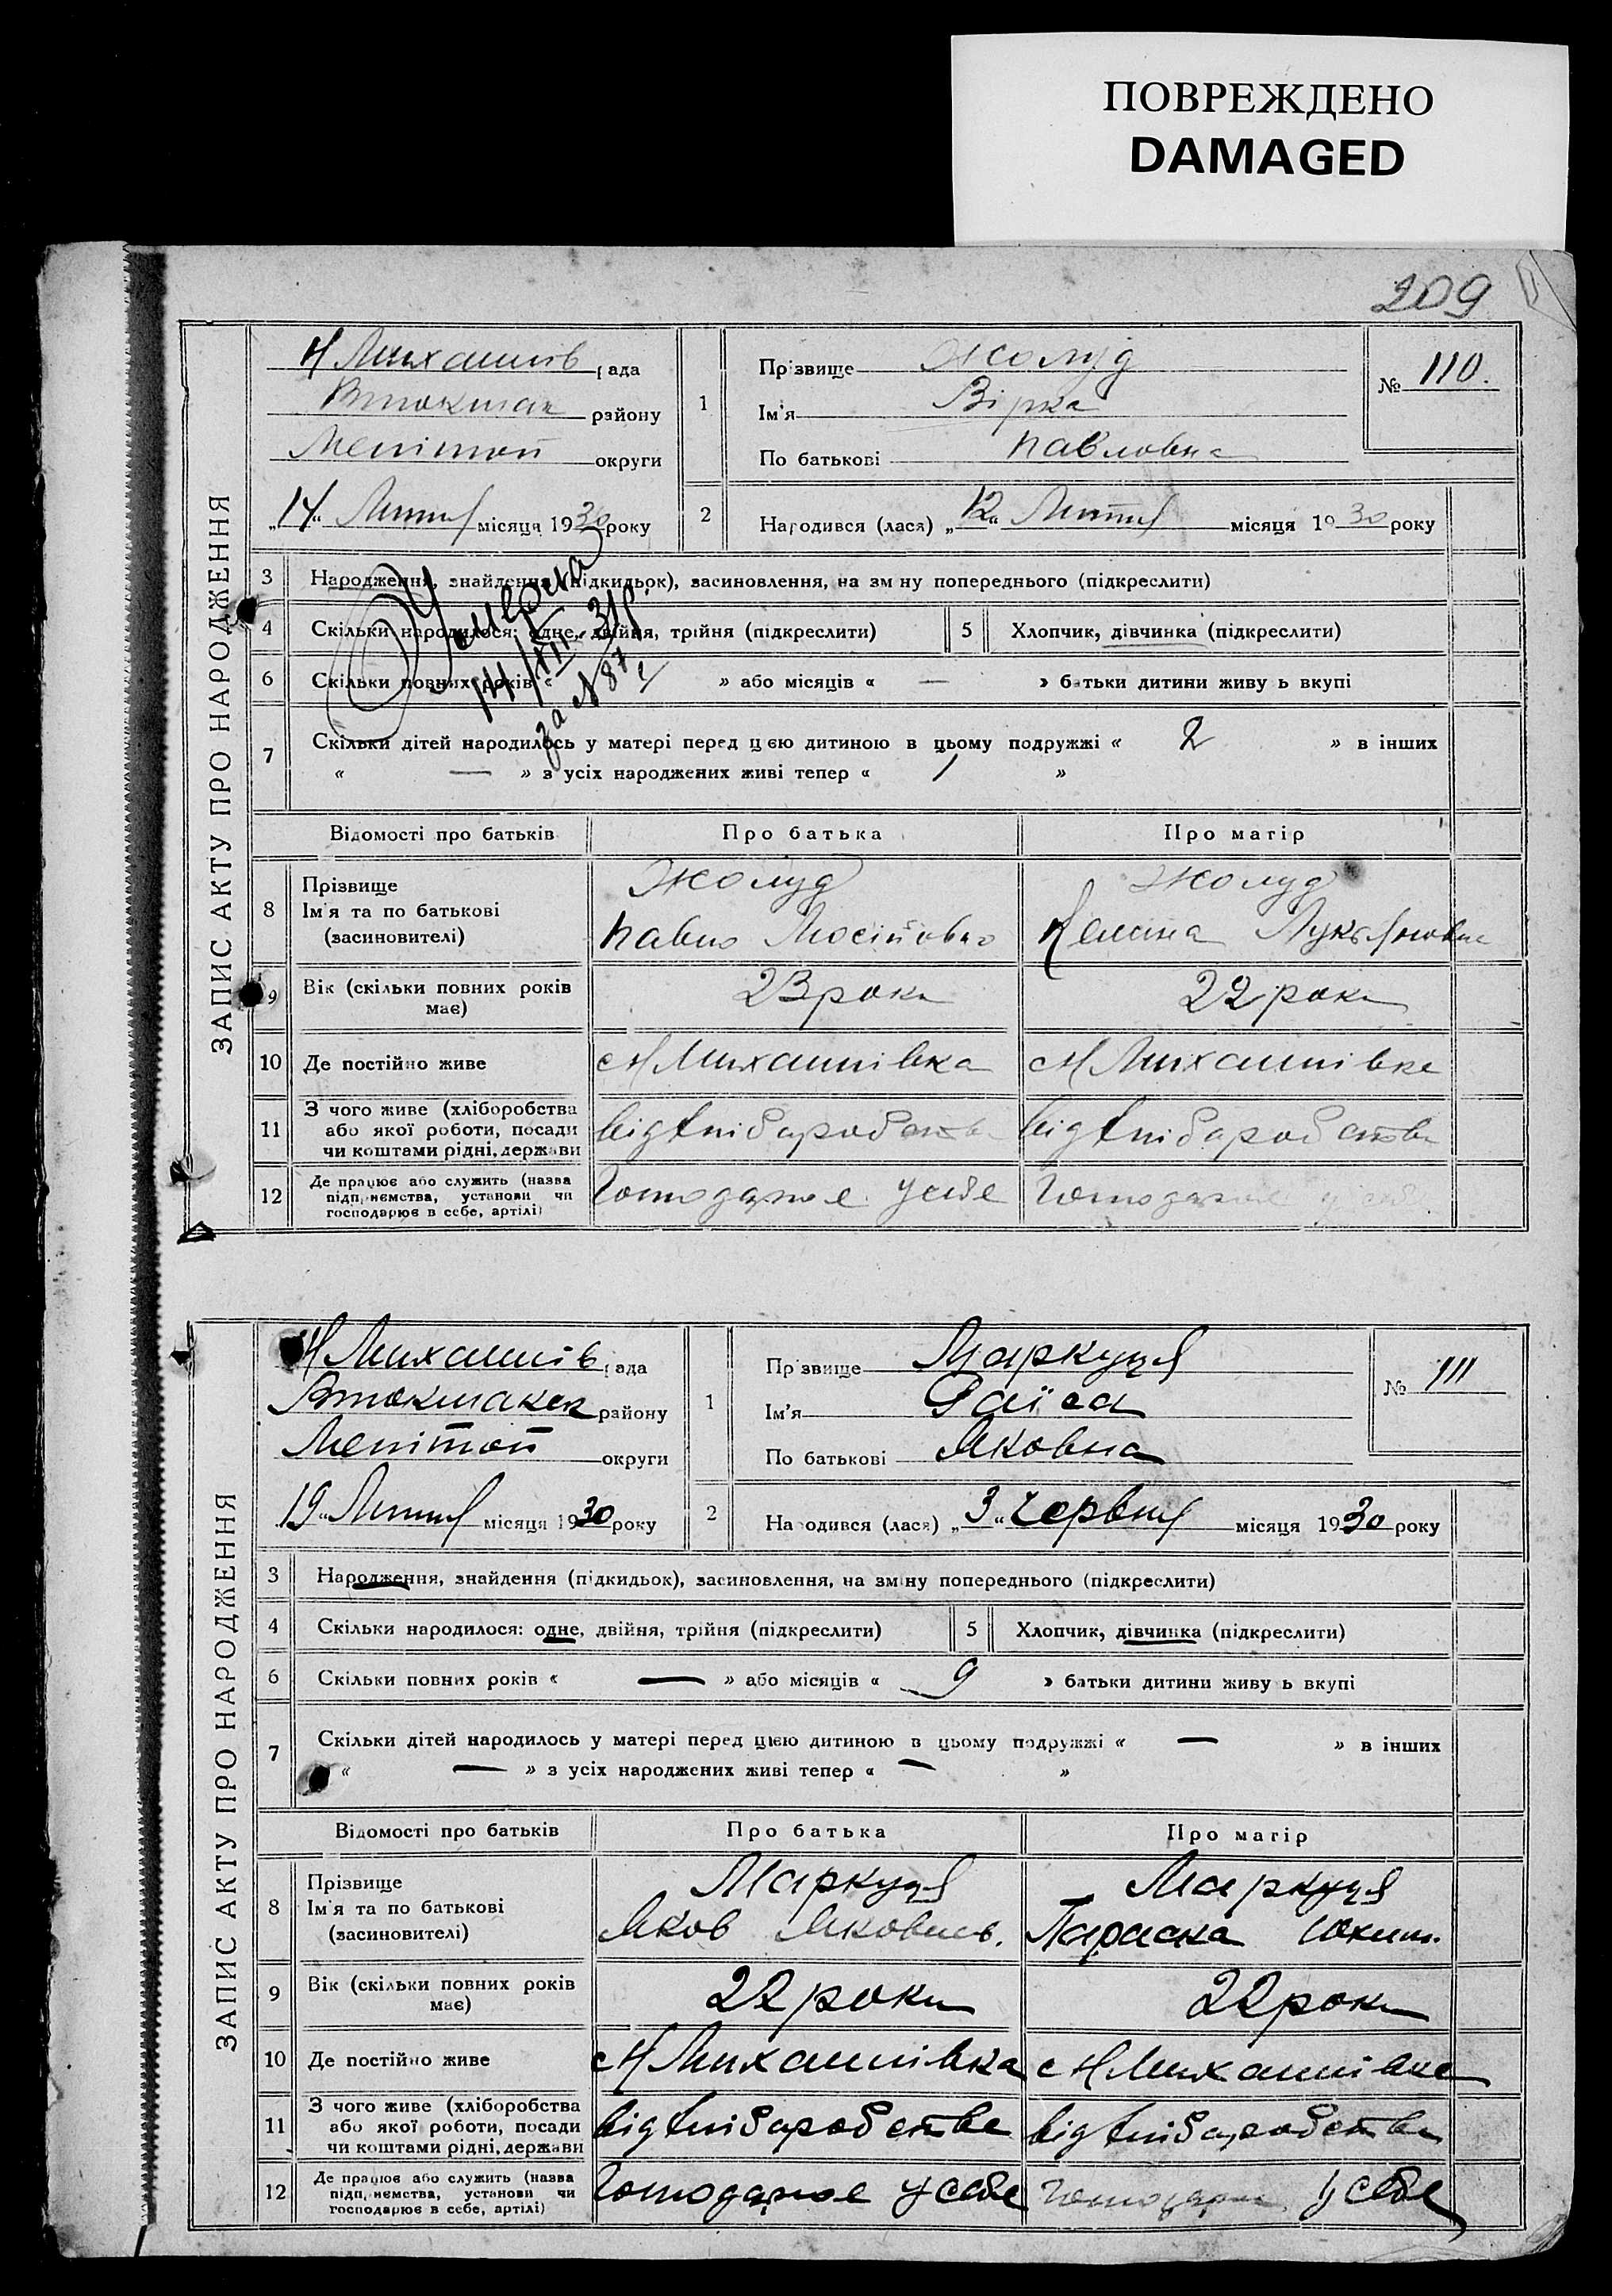 ПОВРЕЖДЕНО
DAMAGED
209
ЗАПИС АКТУ ПРО НАРОДЖЕННЯ
Н Михайлів рада
Втокмак району
Мелітоп округи
„14“ Липня місяця 1930 року
1 Прізвище Жолуд
Ім'я Вірка
По батькові Павловна
№ 110.
2 Народився (лася) „12“ Липня місяця 1930 року
3 Народження, знайдення (підкидьок), засиновлення, на зміну попереднього (підкреслити)
Умерла
14/XII-31р.
за № 87
4 Скільки народилося: одне, двійня, трійня (підкреслити)
5 Хлопчик, дівчинка (підкреслити)
6 Скільки повних років « » або місяців « — » батьки дитини живуть вкупі
7 Скільки дітей народилось у матері перед цією дитиною в цьому подружжі « 2 » в інших
« — » з усіх народжених живі тепер « 1 »
Відомості про батьків Про батька Про матір
8 Прізвище Ім'я та по батькові (засиновителі)
Жолуд Жолуд
Павло Йосіпович Келина Лукьяновна
9 Вік (скільки повних років має) 23 роки 22 роки
10 Де постійно живе с Н Михайлівка с Н Михайлівка
11 З чого живе (хліборобства або якої роботи, посади чи коштами рідні, держави від хліборобства від хліборобства
12 Де працює або служить (назва підприємства, установи чи господарює в себе, артілі) Господарює у себе Господарює у себе
ЗАПИС АКТУ ПРО НАРОДЖЕННЯ
Н Михайлів рада
Втокмакск району
Мелітоп округи
„19“ Липня місяця 1930 року
1 Прізвище Маркуця
Ім'я Раїса
По батькові Яковна
№ 111
2 Народився (лася) „3“ Червня місяця 1930 року
3 Народження, знайдення (підкидьок), засиновлення, на зміну попереднього (підкреслити)
4 Скільки народилося: одне, двійня, трійня (підкреслити)
5 Хлопчик, дівчинка (підкреслити)
6 Скільки повних років « — » або місяців « 9 » батьки дитини живуть вкупі
7 Скільки дітей народилось у матері перед цією дитиною в цьому подружжі « — » в інших
« — » з усіх народжених живі тепер « — »
Відомості про батьків Про батька Про матір
8 Прізвище Ім'я та по батькові (засиновителі)
Маркуця Маркуця
Яков Яковлев. Параска Юхим.
9 Вік (скільки повних років має) 22 роки 22 роки
10 Де постійно живе с Н Михайлівка с Н Михайлівка
11 З чого живе (хліборобства або якої роботи, посади чи коштами рідні, держави від хліборобства від хліборобства
12 Де працює або служить (назва підприємства, установи чи господарює в себе, артілі) Господарює у себе Господарює у себе